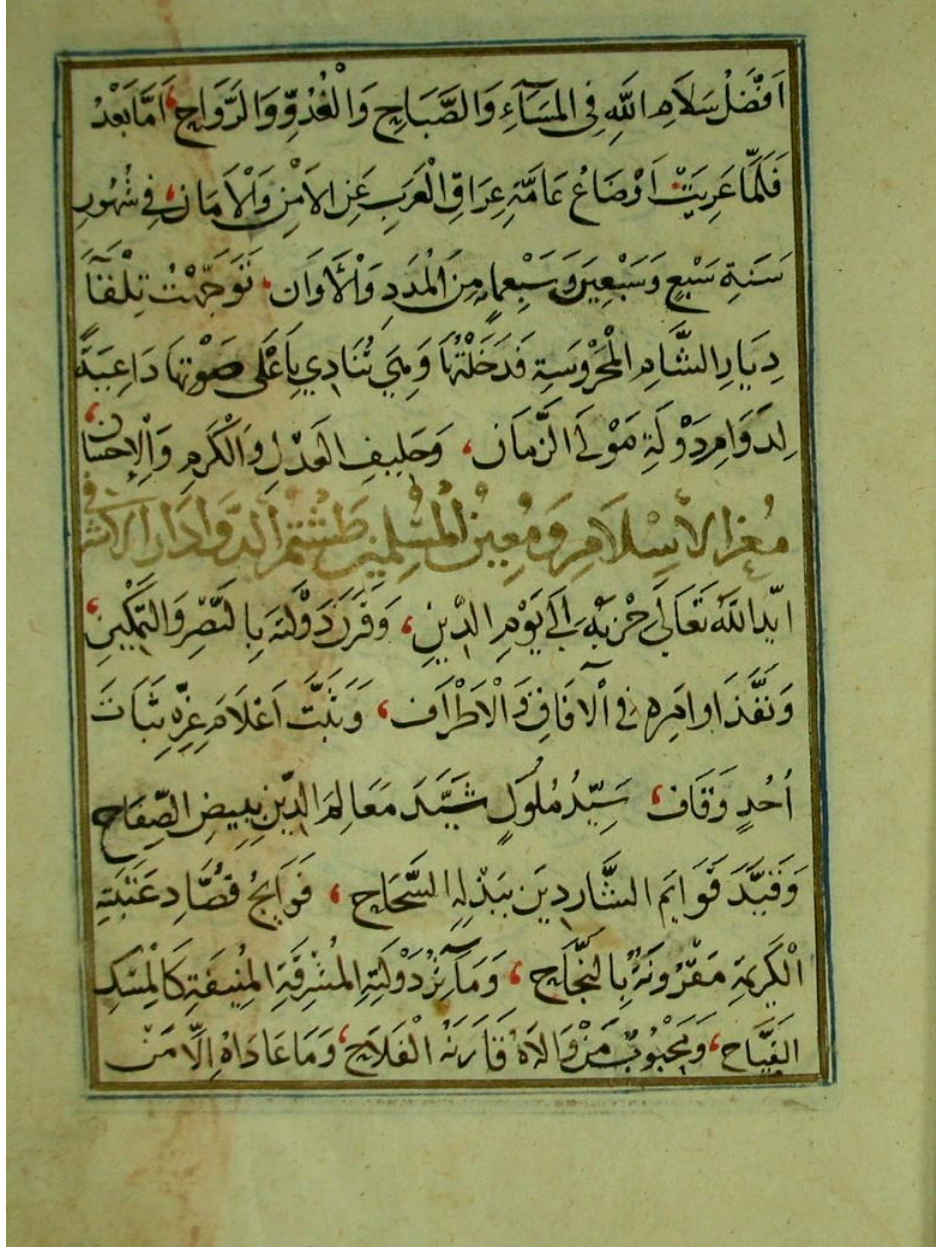 اَفْضَلُ سَلَامِ اللَّهِ فِى الْمَسَآءِ وَالصَّبَاحِ وَالْغُدُوِّ وَالرَّوَاحِ، اَمَّا بَعْدُ
فَلَمَّا عَرِيَتْ اَوْضَاعُ عَامَّةِ عِرَاقِ الْعَرَبِ عَنِ الْاَمْنِ وَالْاَمَانِ، فِى شُهُورِ
سَنَةِ سَبْعٍ وَسَبْعِينَ وَسَبْعِمِايةٍ مِنَ الْمُدَدِ وَالْاَوَانِ، تَوَجَّهْتُ تِلْقَآ
دِيَارِ الشَّامِ الْمَحْرُوسَةِ فَدَخَلْتُهَا وَهِيَ تُنَادِي بِاَعْلَى صَوْتِهَا دَاعِيَةً
لِدَوَامِ دَوْلَةِ مَوْلَى الزَّمَانِ، وَحَلِيفِ الْعَدْلِ وَالْكَرَمِ وَالْاِحْسَانِ،
مُعِزِّ الْاِسْلَامِ وَمُعِينِ الْمُسْلِمِينَ طَشْتَمُرَ الدَّوَادَارِ الْاَشْرَفِى
ايّد اللّٰه تَعَالَى حِزْبَهُ اِلَى يَوْمِ الدِّينِ، وَقَرَنَ دَوْلَتَهُ بِالنَّصْرِ وَالتَّمْكِينِ،
وَنَفَّذَ اوامِرَه فِى الْآفَاقِ وَالْاَطْرَافِ، وَثَبَّتَ اَعْلَامَ عِزِّهِ ثَبَاتَ
اُحُدٍ وَقَاف، سَيِّدُ مُلُوكٍ شَيَّدَ مَعَالِمَ الدِّينِ بِبِيضِ الصِّفَاحِ
وَقَيَّدَ قَوَايِمَ الشَّارِدِينَ بِبَذْلِهِ السَّحَّاحِ، فَوَايِحُ قُصَّادِ عَتَبَتِهِ
الْكَرِيمَةِ مَقْرُونَةٌ بِالنَّجَاحِ، وَمَآثِرُ دَوْلَتِهِ الْمُشْرِقَةِ الْمُنِيفَةِ كَالْمِسْكِ
الفَيَّاحِ، وَمَحْبُوبُ مَنْ وَالَاهُ قَارَنَهُ الْفَلَاحُ، وَمَا عَادَاهُ اِلَّا مَنْ